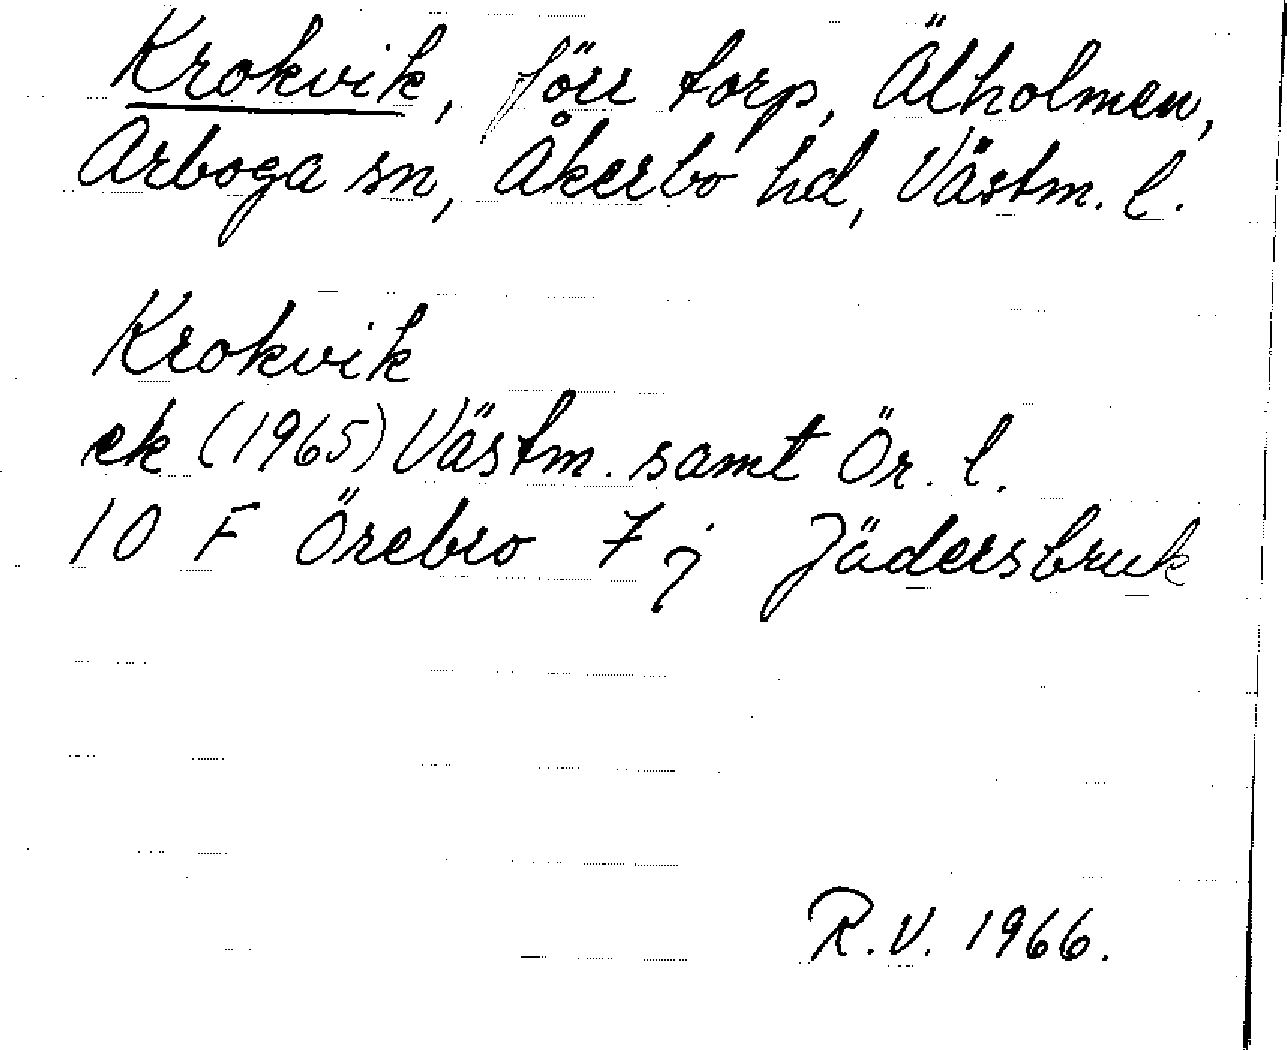 Krokvik, förr torp, Älholmen,
Arboga sn, Åkerbo hd, Västm. l.
Krokvik
ek (1965) Västm. samt Ör. l.
10 F Örebro 7 j Jädersbruk
R.V. 1966.